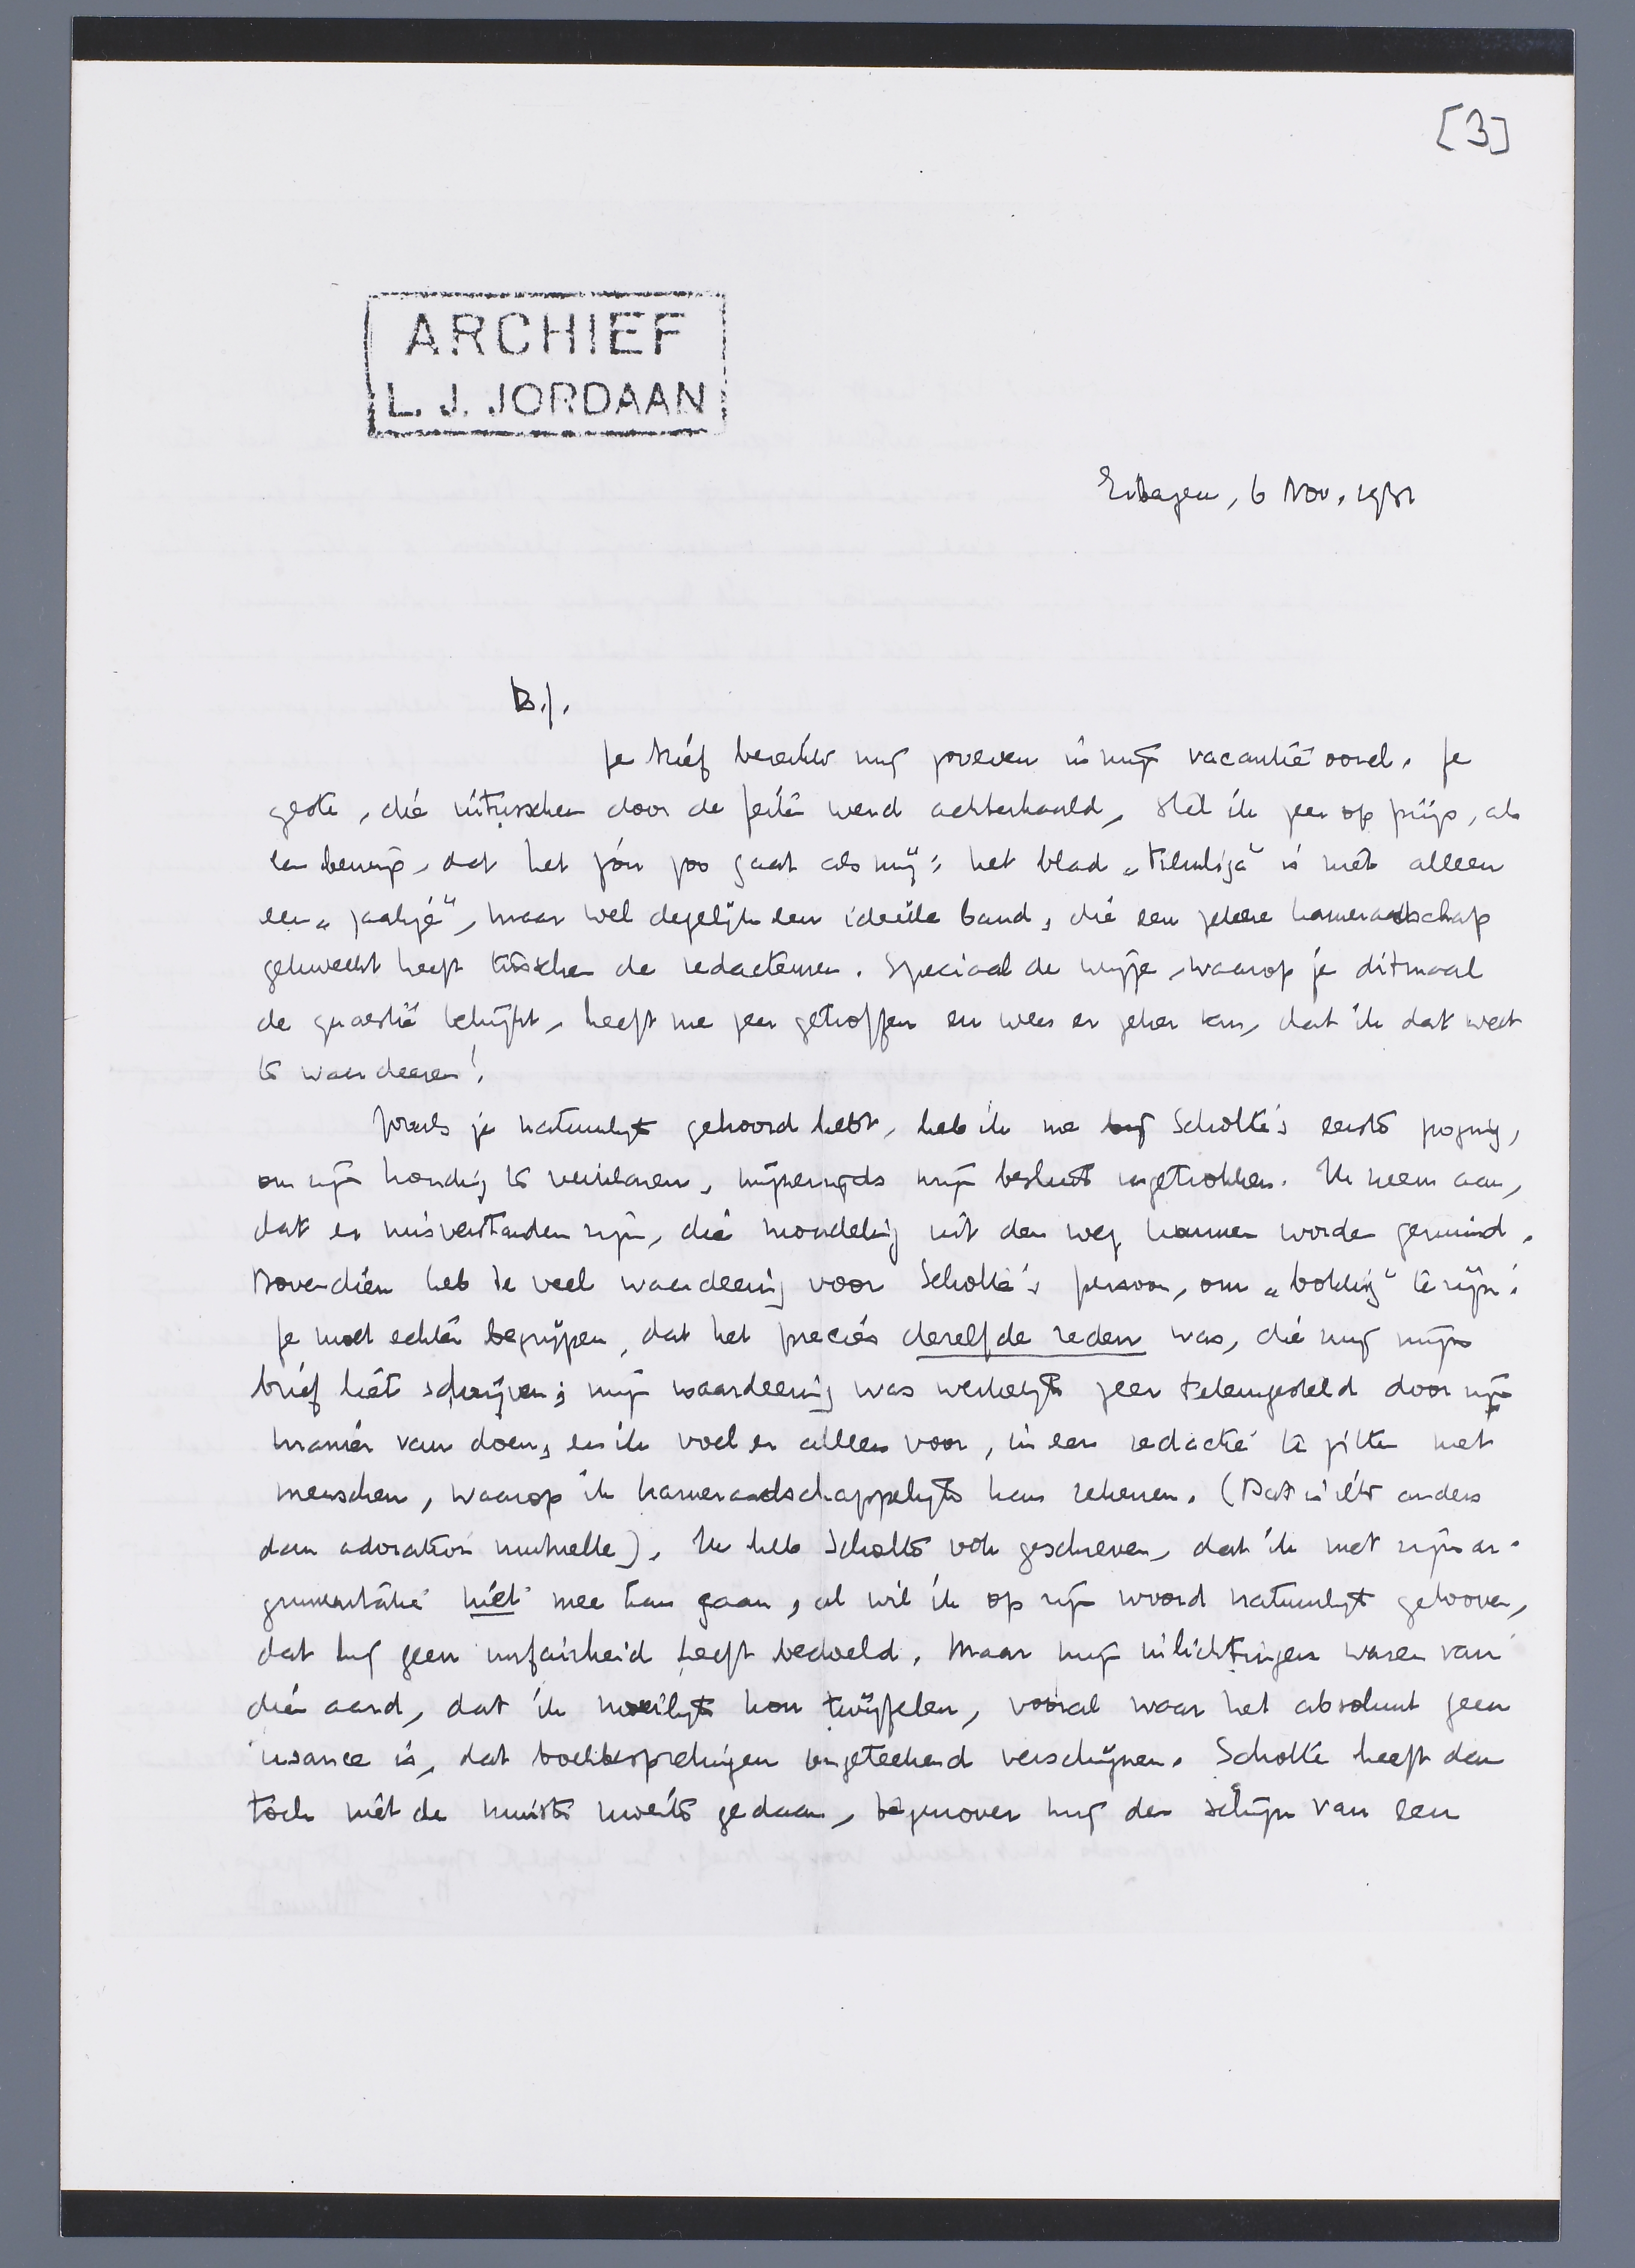 [3]
ARCHIEF
L. J. JORDAAN
Eibergen, 6 Nov. 1931
B.J.
Je brief bereikte mij zooeven in mijn vacantieoord. Je
geste, die intusschen door de feiten werd achterhaald, stel ik zeer op prijs, als
een bewijs, dat het jou zoo gaat als mij: het blad „Filmliga" is niet alleen
een „zaakje", maar wel degelijk een ideëele band, die een zekere kameraadschap
gekweekt heeft tusschen de redacteuren. Speciaal de wijze, waarop je ditmaal
de quaestie bekijkt, heeft me zeer getroffen en wees er zeker van, dat ik dat weet
te waardeeren!
Zooals je natuurlijk gehoord hebt, heb ik na Scholte's eerste poging,
om zijn houding te verklaren, mijnerzijds mijn besluit ingetrokken. Ik neem aan,
dat er misverstanden zijn, die mondeling uit den weg kunnen worden geruimd.
Bovendien heb ik veel waardeering voor Scholte's persoon, om „bokkig" te zijn.
Je moet echter begrijpen, dat het precies dezelfde reden was, die mij mijn
brief liet schrijven; mijn waardeering was werkelijk zeer teleurgesteld door zijn
manier van doen, en ik voel er alleen voor, in een redactie te zitten met
menschen, waarop ik kameraadschappelijk kan rekenen. (Dat is iets anders
dan adoration mutuelle). Ik heb Scholte ook geschreven, dat ik met zijn ar-
gumentatie niet mee kan gaan, al wil ik op zijn woord natuurlijk gelooven,
dat hij geen unfairheid heeft bedoeld. Maar mijn inlichtingen waren van
dien aard, dat ik moeilijk kon twijfelen, vooral waar het absoluut geen
usance is, dat boekbesprekingen ongeteekend verschijnen. Scholte heeft dan
toch niet de minste moeite gedaan, tegenover mij den schijn van een